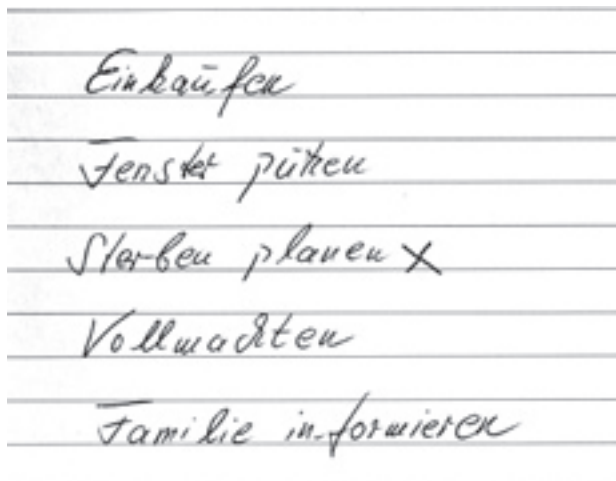 Einkaufen
Fenster putzen
Sterben planen X
Vollmachten
Familie informieren